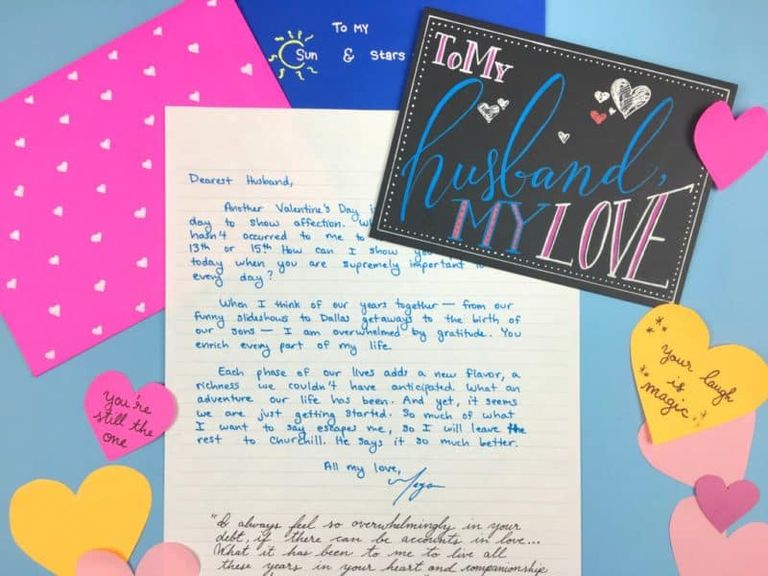 To MY
Sun & Stars
To My
husband,
MY LOVE
Dearest Husband,
Another Valentine's Day
day to show affection.
hasn't occurred to me to
13th or 15th How can I show
today when you are supremely important
every day?
When I think of our years together — from our
funny slideshows to Dallas getaways to the birth of
our sons — I am overwhelmed by gratitude. You
enrich every part of my life.
Each phase of our lives adds a new flavor, a
richness we couldn't have anticipated. What an
adventure our life has been. And yet, it seems
we are just getting started. So much of what
I want to say escapes me, so I will leave the
rest to Churchill. He says it so much better.
All my love,
"I always feel so overwhelmingly in your
debt, if there can be accounts in love...
What it has been to me to live all
these years in your heart and companionship
You're
still the
one
your laugh
is
magic.